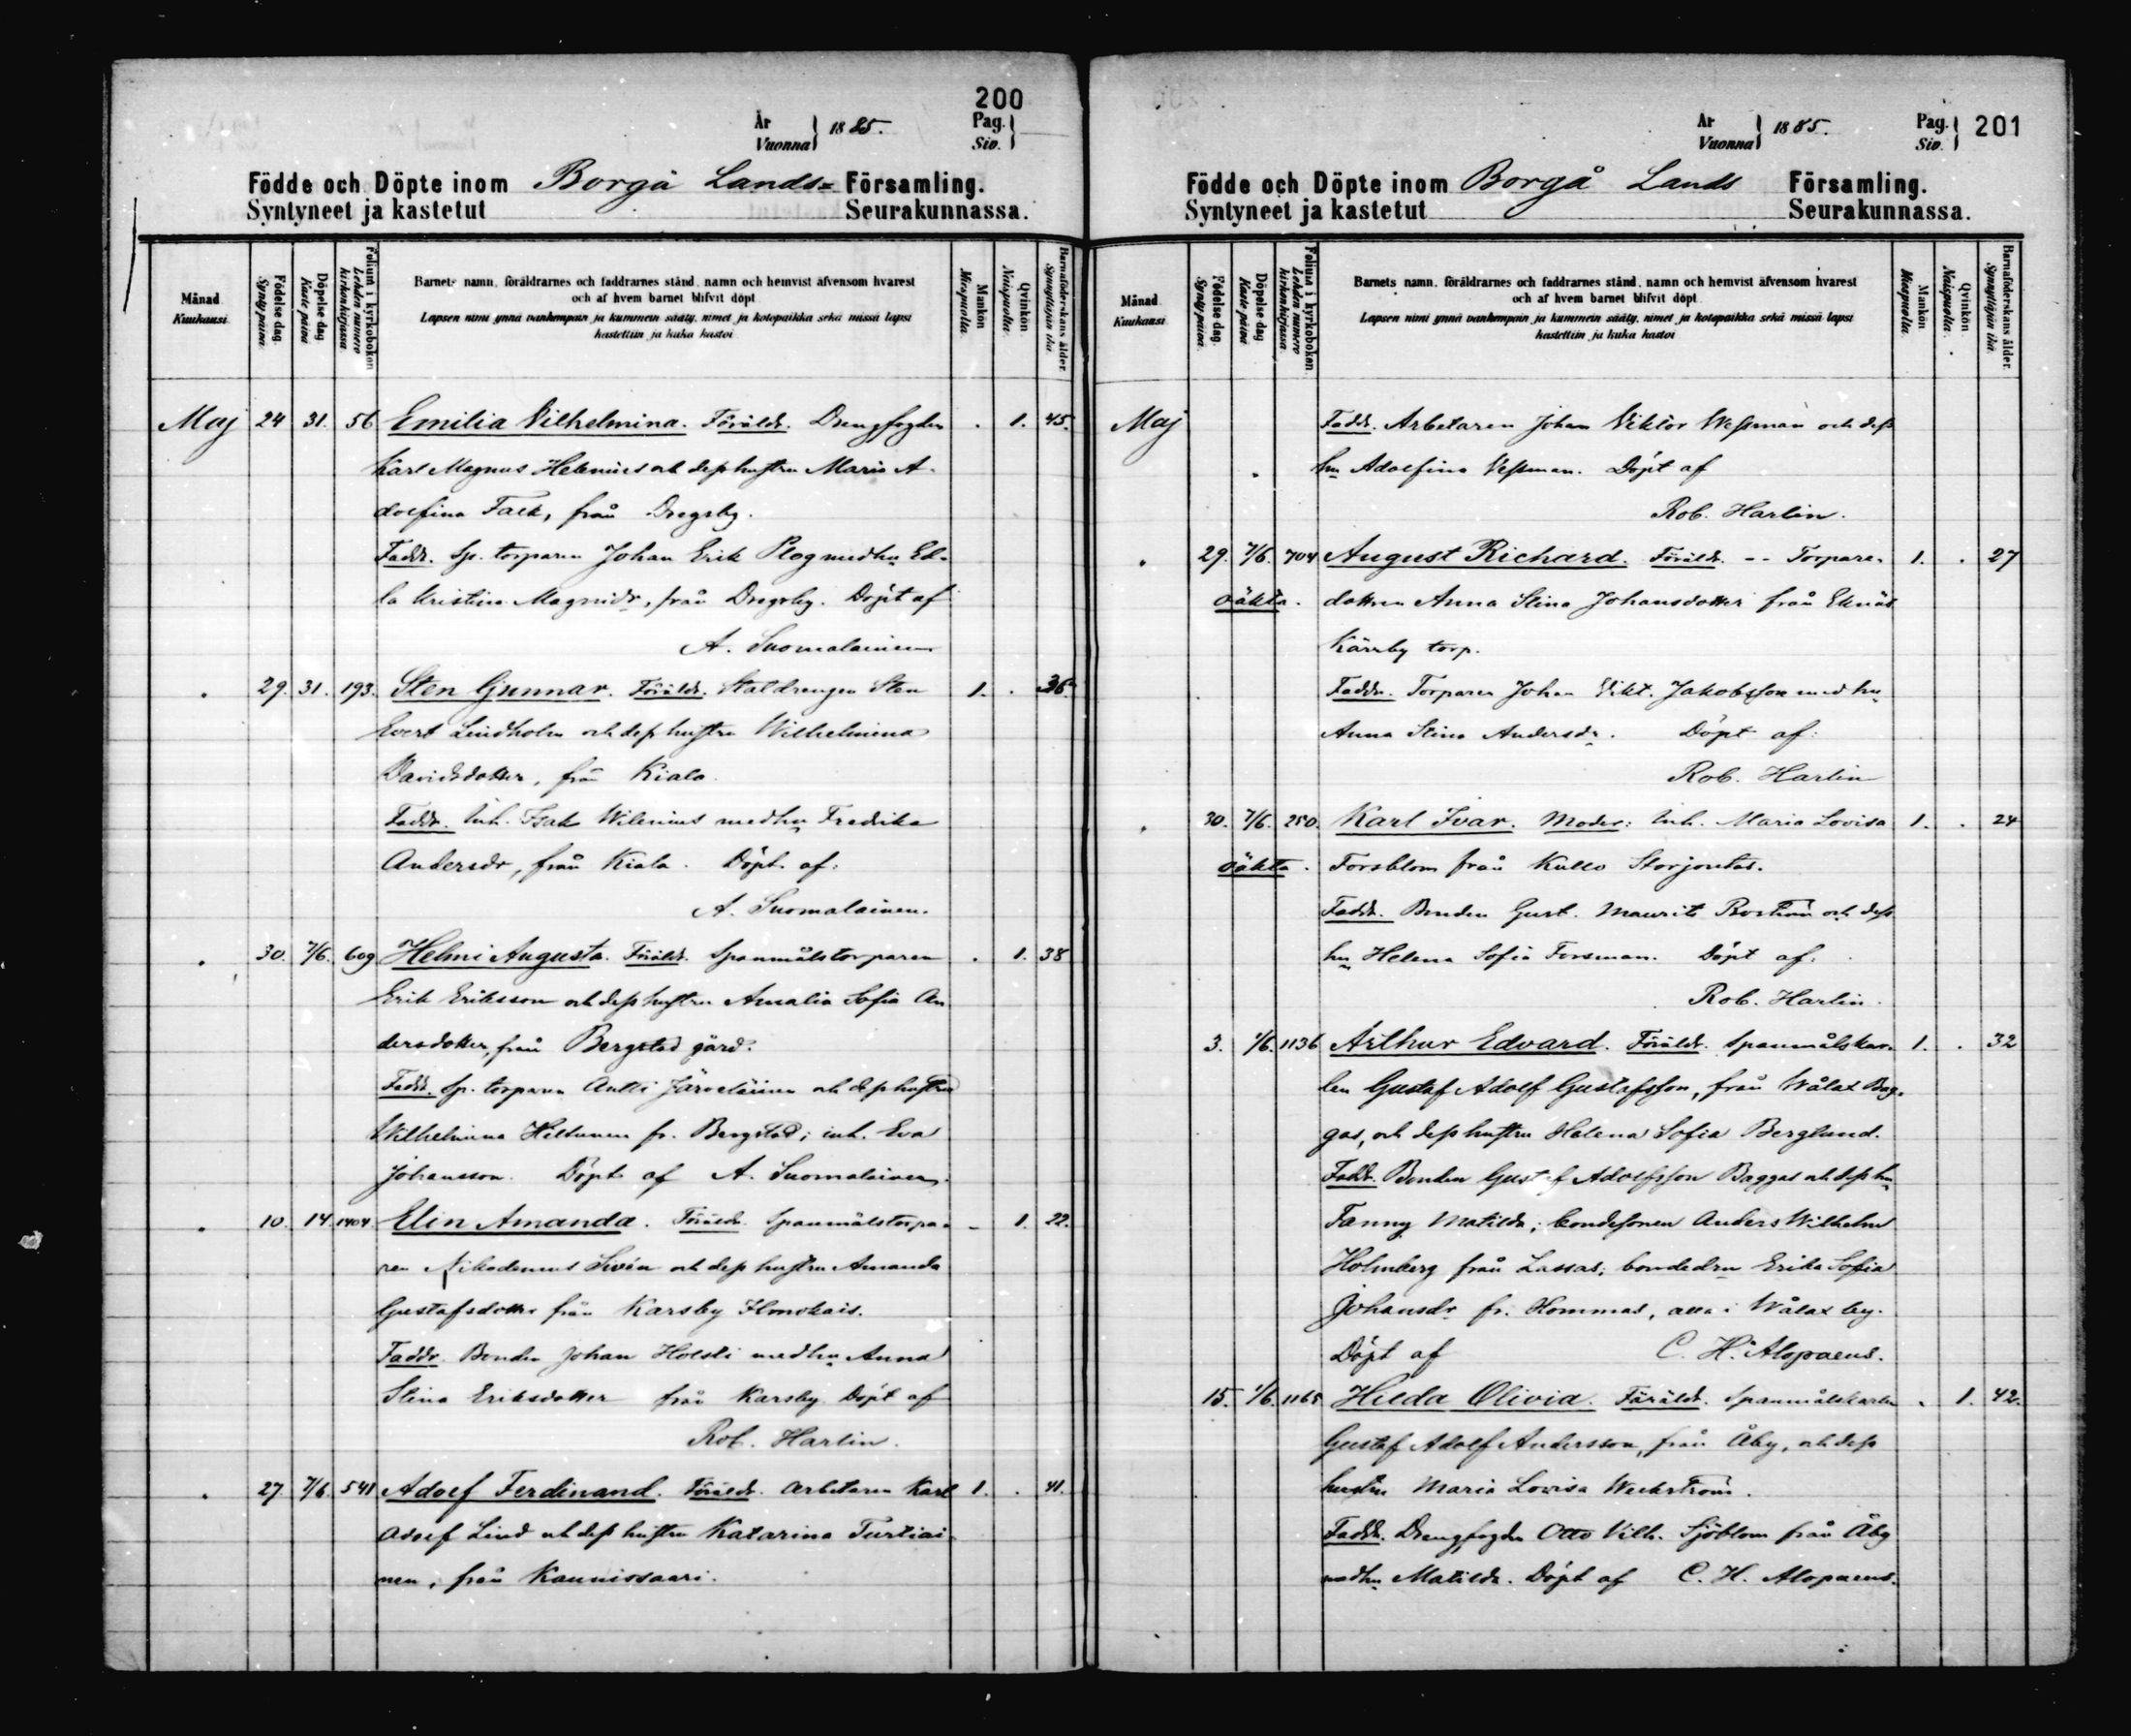 200
År Vuonna } 1885. Pag. Siv. }
Födde och Döpte inom Borgå Lands= Församling.
Syntyneet ja kastetut Seurakunnassa.
Månad Kuukausi
Födelse dag. Synty päinä.
Döpelse dag Kaste päinä
Folium i kyrkoboken Lehden numero kirkonkirjassa
Barnets namn, föräldrarnes och faddrarnes stånd, namn och hemvist äfvensom hvarest
och af hvem barnet blifvit döpt
Lapsen nimi ynnä vanhempain ja kummein sääty, nimet ja kotopaikka sekä missä lapsi
kastettiin ja kuka kastoi
Mankön Miespuolta.
Qvinkön. Naispuolta.
Barnaföderskans ålder. Synnyttäjän ikä
Maj 24 31. 56 Emilia Vilhelmina. Föräldr. Drengfogden . 1. 45.
Karl Magnus Helenius och dess hustru Maria A-
dolfina Falk, från Dregsby.
Faddr. Sp. torparen Johan Erik Plog med hu Ed-
la Kristina Magnidr, från Dregsby. Döpt af
A. Suomalainen
. 29. 31. 193. Sten Gunnar. Föräldr. Staldrengen Sten 1. . 36
Evert Lindholm och dess hustru Wilhelmina
Davidsdotter, från Kiala.
Faddr. Inh. Isak Wilenius med hu Fredrika
Andersdr, från Kiala. Döpt af:
A. Suomalainen.
. 30. 7/6. 609 Helmi Augusta. Föräldr. Spanmålstorparen . 1. 38
Erik Eriksson och dess hustru Amalia Sofia An
dersdotter, från Bergstad gård.
Faddr. Sp. torparen Antti Järveläinen och dess hustru
Wilhelmina Hiltunen fr. Bergstad; inh. Eva
Johansson. Döpt af A. Suomalainen.
. 10. 14. 1404. Elin Amanda. Föräldr. Spanmålstorpa- - 1. 22.
ren Nikodemus Sivén och dess hustru Amanda
Gustafsdotter från Karsby
Faddr. Bonden Johan Holsti med hu Anna
Stina Eriksdotter från Karsby. Döpt af
Rob. Harlin.
. 27. 7/6. 541 Adolf Ferdinand. Föräldr. Arbetaren Karl 1. . 41.
Adolf Lind och dess hustru Katarina Turtiai-
nen, från Kaunissaari.
År Vuonna } 1885. Pag. Siv. } 201
Födde och Döpte inom Borgå Lands Församling.
Syntyneet ja kastetut Seurakunnassa.
Månad Kuukausi
Födelse dag. Synty päinä.
Döpelse dag Kaste päinä
Folium i kyrkoboken Lehden numero kirkonkirjassa
Barnets namn, föräldrarnes och faddrarnes stånd, namn och hemvist äfvensom hvarest
och af hvem barnet blifvit döpt
Lapsen nimi ynnä vanhempain ja kummein sääty, nimet ja kotopaikka sekä missä lapsi
kastettiin ja kuka kastoi
Mankön Miespuolta.
Qvinkön. Naispuolta.
Barnaföderskans ålder. Synnyttäjän ikä
Maj Faddr. Arbetaren Johan Viktor Wessman och dess
hu Adolfina Vessman. Döpt af
Rob. Harlin.
. 29. 7/6. 704 August Richard. Föräldr. -- Torpare- 1. . 27
oäkta. dottren Anna Stina Johansdotter från Eknäs
Kärrby torp.
Faddr. Torparen Johan Vikt. Jakobsson med hu
Anna Stina Andersdr. Döpt af:
Rob. Harlin
. 30. 7/6. 250. Karl Ivar. Moder: Inh. Maria Lovisa 1. . 24
oäkta. Forsblom från Kullo Storjontas.
Faddr. Bonden Gust. Maurits Boström och dess
hu Helena Sofia Forsman. Döpt af:
Rob. Harlin.
3. 1/6. 1136 Arthur Edvard. Föräldr. Spanmålskar- 1. . 32
len Gustaf Adolf Gustafsson, från Wålax Bag-
gas, och dess hustru Helena Sofia Berglund.
Faddr. Bonden Gustaf Adolfsson Baggas och dess hu
Fanny Matilda; bondesonen Anders Wilhelm
Holmberg från Lassas; bondedrn Erika Sofia
Johansdr fr. Hommas, alla i Wålax by.
Döpt af C. H. Alopaeus.
15. 1/6. 1165 Hilda Olivia. Föräldr. Spanmålskarlen . 1. 42.
Gustaf Adolf Andersson, från Åby, och dess
hustru Maria Lovisa Weckström.
Faddr. Drengfogden Otto Vilh. Sjöblom från Åby
med hu Matilda. Döpt af C. H. Alopaeus.